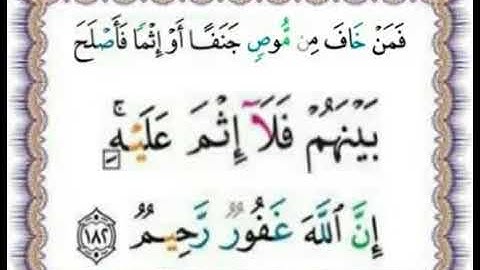 فَمَنْ خَافَ مِن مُّوصٍ جَنَفًا أَوْ إِثْمًا فَأَصْلَحَ
بَيْنَهُمْ فَلَآ إِثْمَ عَلَيْهِ ۚ
إِنَّ ٱللَّهَ غَفُورٌ رَّحِيمٌ ١٨٢